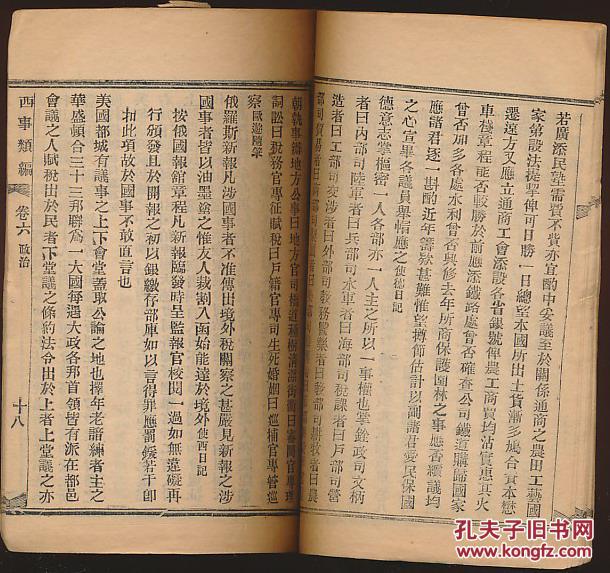 若廣添民塾需費不貲亦宜酌中妥議至於關係通商之農田工藝國
家第設法提挈俾可日勝一日總望本國所出土貨漸多鳩合資本懋
遷遠方又應立通商工會添設各省銀號俾農工商賈均沾實惠其火
車棧章程能否較勝於前應添鐵路處曾否確查公司鐵道購歸國家
曾否加多各處水利曾否興修去年所商保護園林之事應否續議均
應諸君逐一斟酌近年籌欵甚難惟望撙節估計以副諸君愛民保國
之心宣畢各議員舉帽應之使德日記
德意志掌樞密一人各部亦一人主之所以一事權也掌銓政司文柄
者曰內部司陸軍者曰兵部司水軍者曰海部司稅課者曰戶部司營
造者曰工部司交涉者曰外部司教務
部司貿易者曰商部
朝執事辦地方公事曰地方官司橋道
詞訟曰稅務官專征賦稅曰戶籍官專司生死婚姻曰巡捕官專管巡
察歐遊隨筆
俄羅斯新報凡涉國事者不准傳出境外稅關察之甚嚴見新報之涉
國事者皆以油墨塗之惟友人裁割入函始能達於境外使西日記
按俄國報館章程凡新報臨發時呈監報官校閱一過如無違礙再
行頒發且於開報之初以銀繳存部庫如以言得罪應罰鍰若干卽
扣此項故於國事不敢直言也
美國都城有議事之上下會堂蓋取公論之地也擇年老諳練者主之
華盛頓合三十三邦聯為一大國每遇大政各邦首領皆有派在都邑
會議之人賦稅出於民者下堂議之條約法令出於上者上堂議之亦
西事類編
卷六 政治
十八
孔夫子旧书网